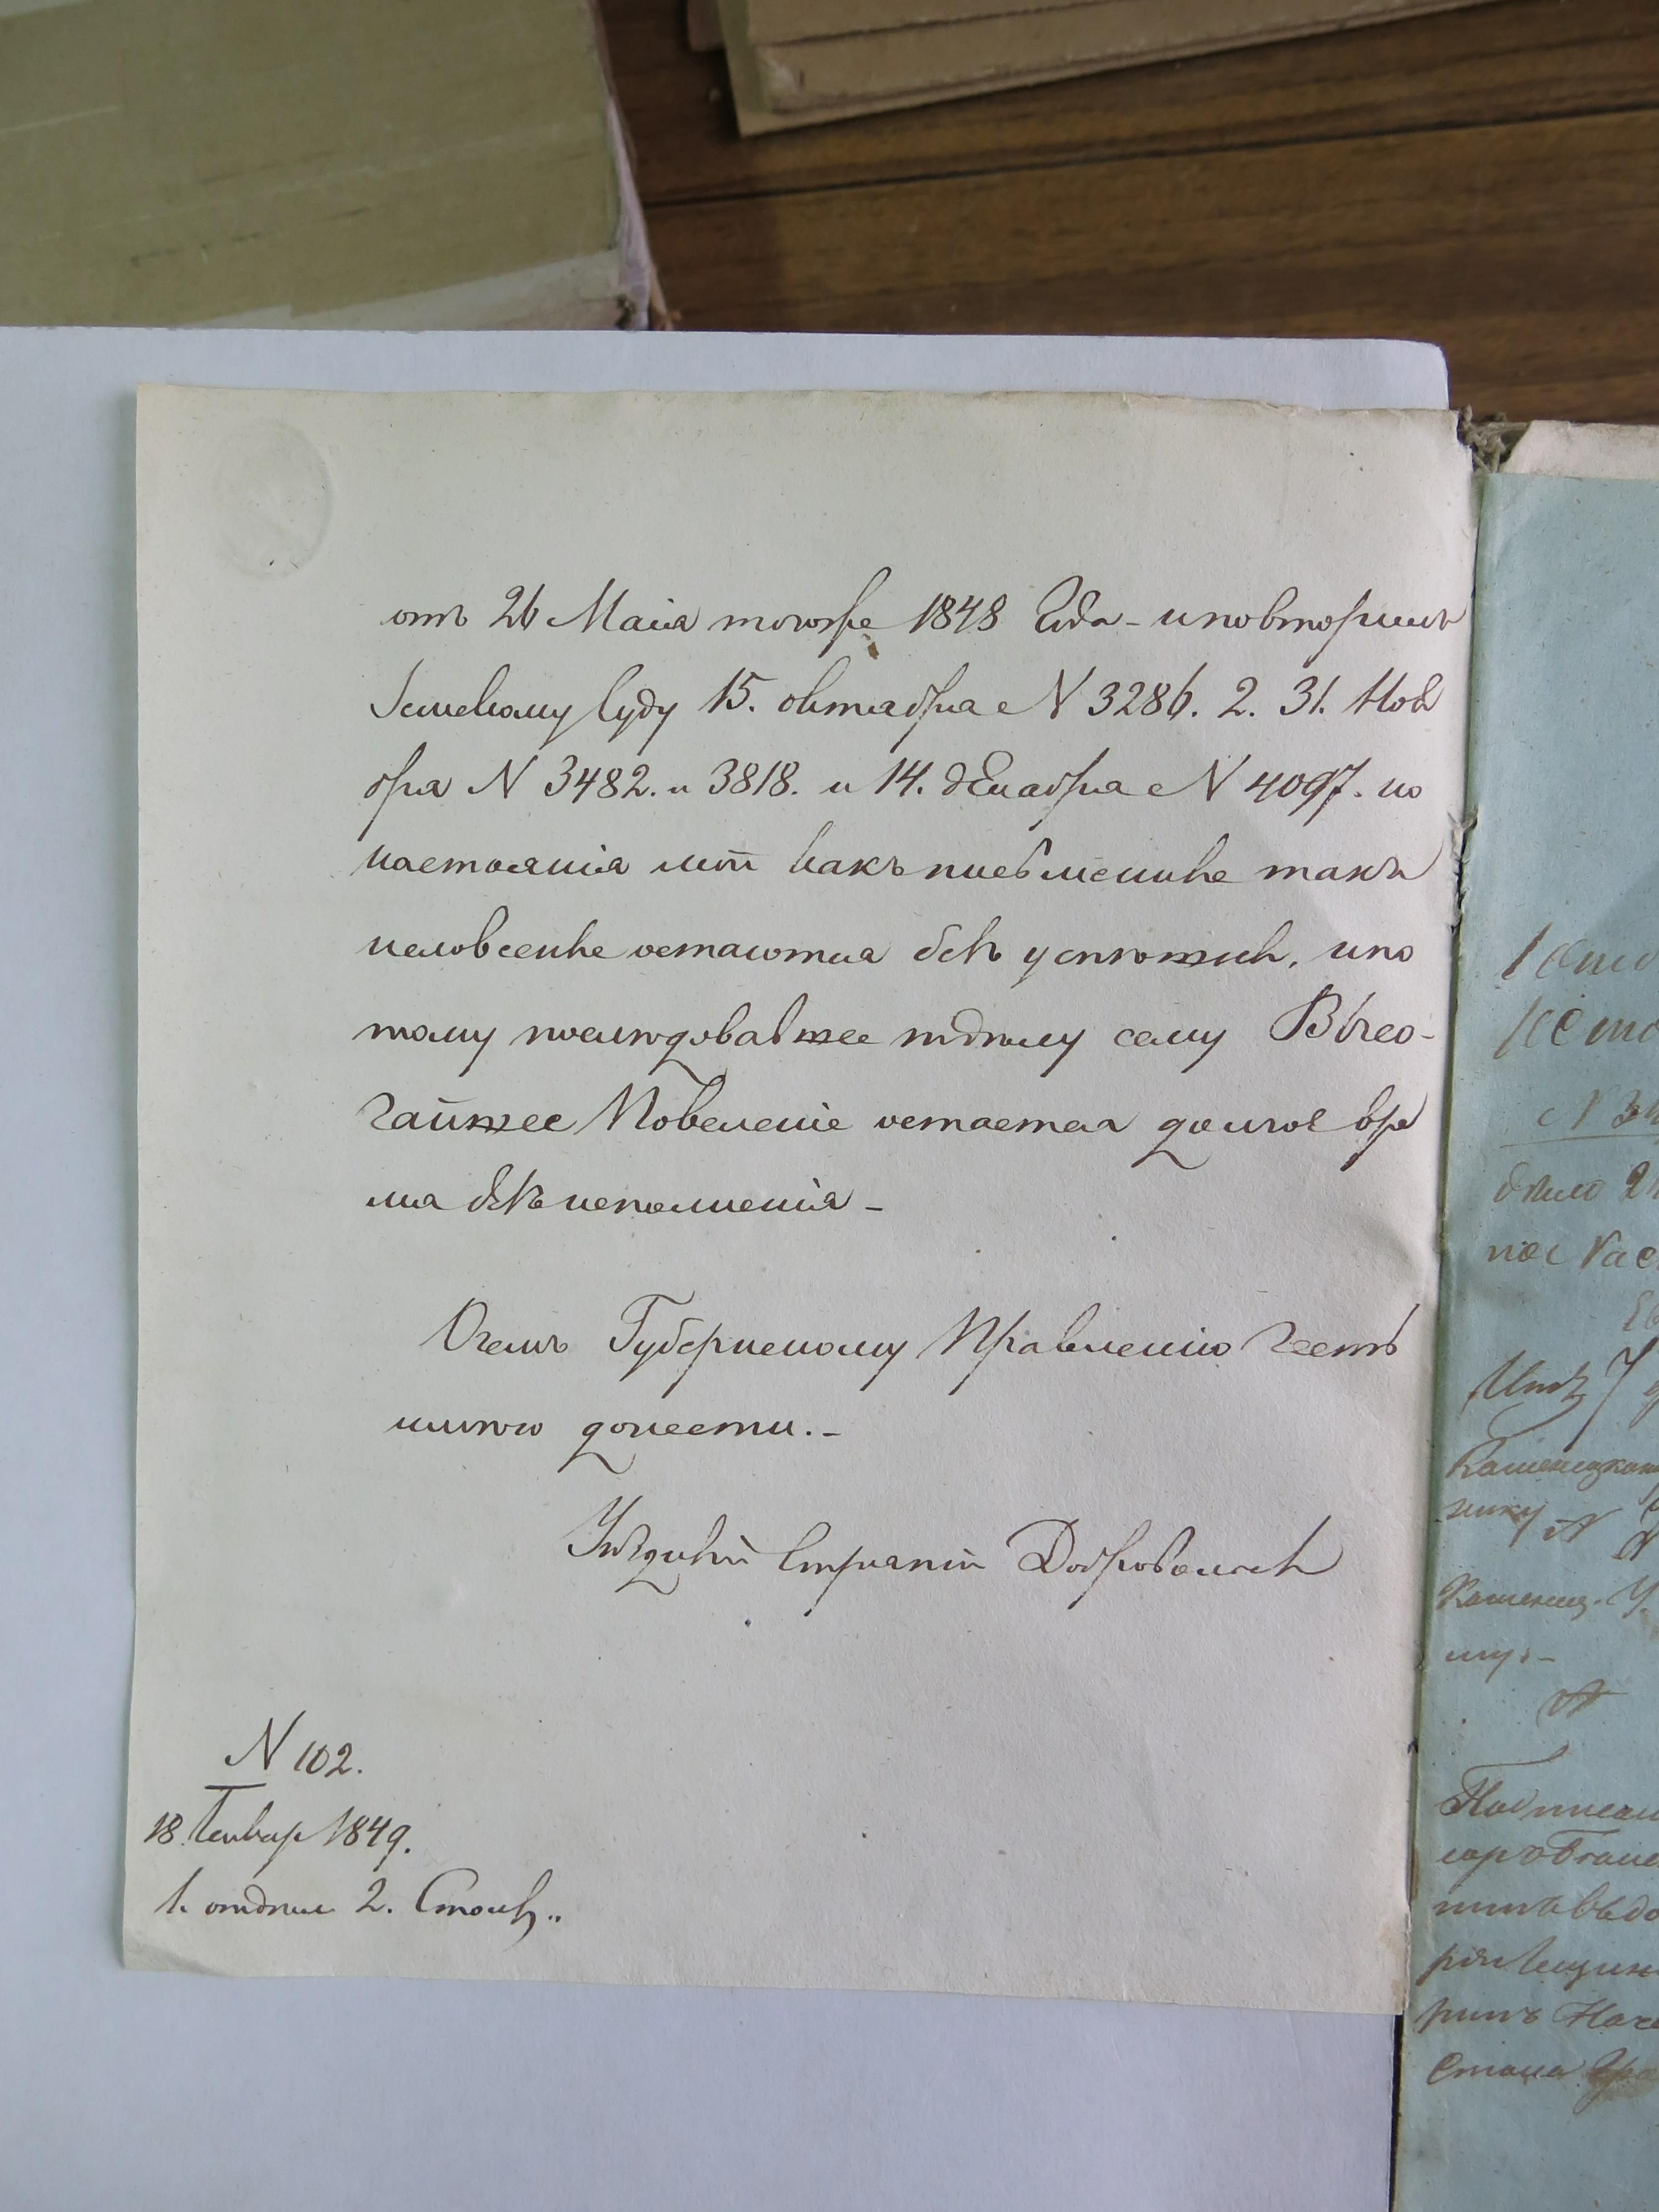 отъ 26 Маія тогоже 1848 Года - и повторилъ
Земскому Суду 15. октября N 3286. 2. 31. Нов
бря N 3482. и 3818. и 14. дЕкабря N 4097. но
настоянія мои какъ писменные такъ
и словесные остаются безъ успѣшны, и по
тому послѣдовавшее по дѣлу сему Высо-
чайшее Повеленіе остается долгое вре
мя безъ исполненія -
О чемъ Губернскому Правленію честь
имѣю донести. -
Уѣздный Стряпчій Добровольск
N 102.
18 Генвар 1849.
1. отдѣл 2. Столъ..
N 34
дѣло
нику
му. -
Стана